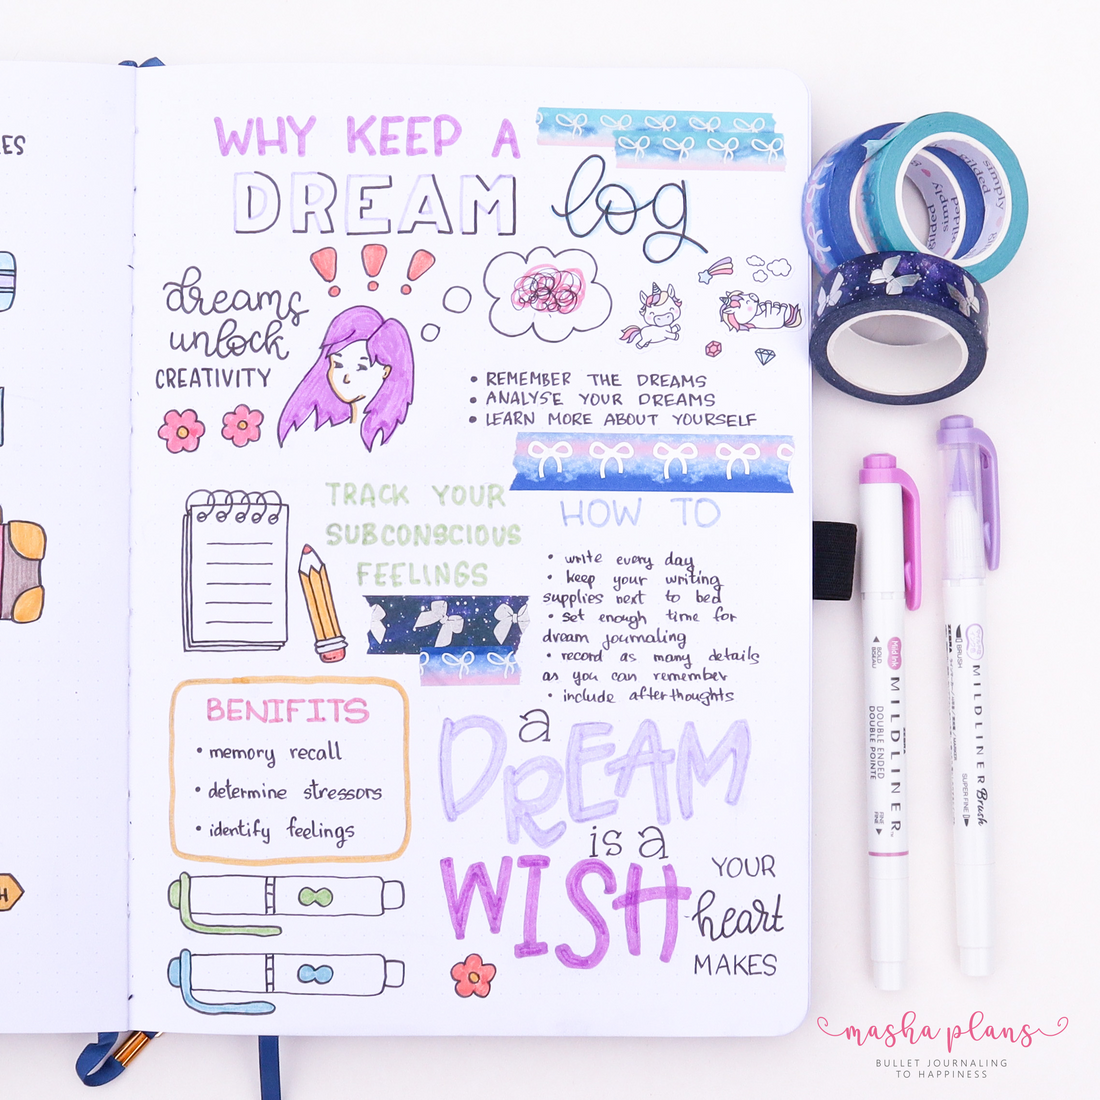 ES
WHY KEEP A
DREAM log
dreams
unlock
CREATIVITY
• REMEMBER THE DREAMS
• ANALYSE YOUR DREAMS
• LEARN MORE ABOUT YOURSELF
TRACK YOUR
SUBCONSCIOUS
FEELINGS
HOW TO
• write every day
• keep your writing
supplies next to bed
• set enough time for
dream journaling
• record as many details
as you can remember
• include afterthoughts
BENIFITS
• memory recall
• determine stressors
• identify feelings
a
DREAM
is a
WISH
YOUR
heart
MAKES
H
simply
gilded
simply
gilded
Mild ink
MILDLINER
DOUBLE ENDED
DOUBLE POINTE
BOLD
FINE
ZEBRA
MILDLINER Brush
BRUSH
SUPER FINE
masha plans
BULLET JOURNALING
TO HAPPINESS